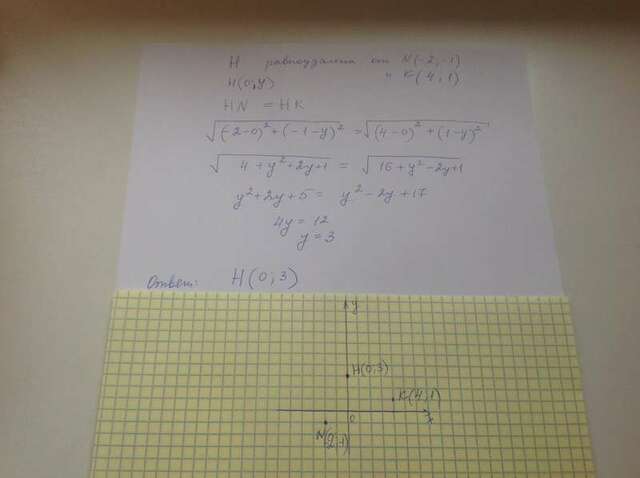 H равноудалена от N(-2;-1)
и K(4;1)
H(0;y)
HN = HK
√(-2-0)²+(-1-y)² = √(4-0)²+(1-y)²
√4+y²+2y+1 = √16+y²-2y+1
y²+2y+5 = y²-2y+17
4y = 12
y = 3
Ответ: H(0;3)
y
H(0;3)
K(4;1)
0
x
N(-2;-1)